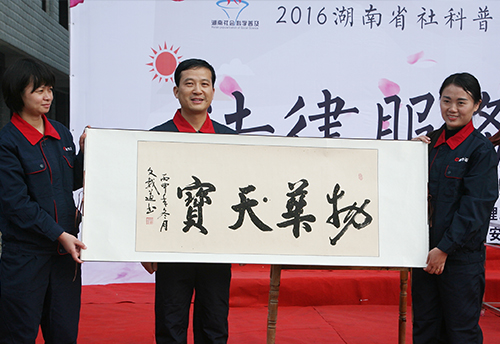 湖南社会科学普及
2016湖南省社科普
法律服务
物華天寶
丙申年冬月
文載道书